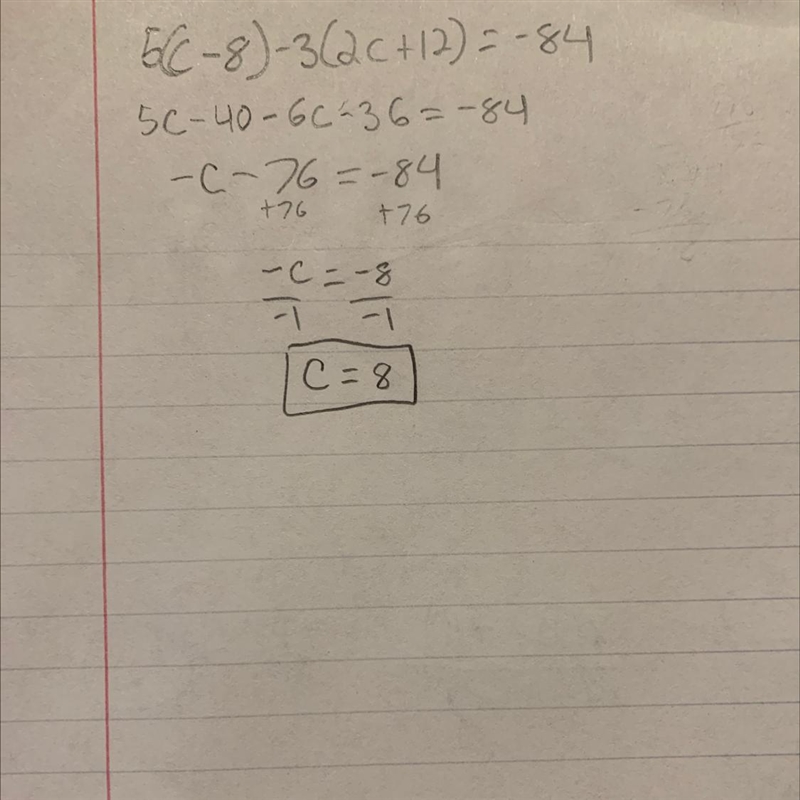 5(C-8)-3(2C+12)=-84
5C-40-6C-36=-84
-C-76=-84
+76 +76
-C=-8
-1 -1
C=8